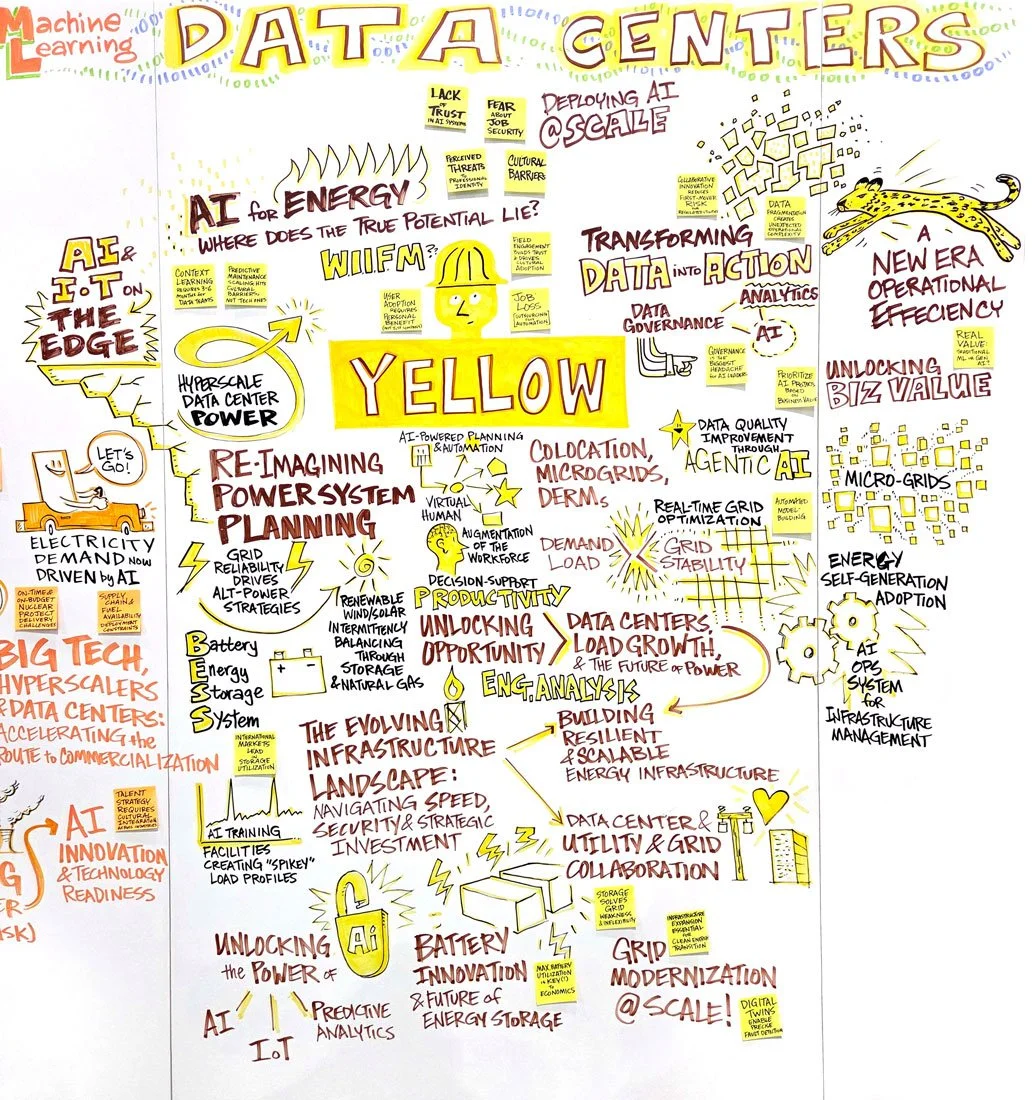 Machine
Learning
DATA CENTERS
LACK
OF
TRUST
IN AI SYSTEMS
FEAR
ABOUT
JOB
SECURITY
DEPLOYING AI
@SCALE
PERCEIVED
THREATS
TO
PROFESSIONAL
IDENTITY
CULTURAL
BARRIERS
AI for ENERGY
WHERE DOES THE TRUE POTENTIAL LIE?
WIIFM??
CONTEXT
LEARNING
REQUIRES 3-6
MONTHS for
DATA TEAMS
PREDICTIVE
MAINTENANCE
SCALING HITS
CULTURAL
BARRIERS,
NOT TECH ONES
FIELD
ENGAGEMENT
BUILDS TRUST
& DRIVES
CULTURAL
ADOPTION
USER
ADOPTION
REQUIRES
PERSONAL
BENEFIT
JOB
LOSS
(OUTSOURCING
AUTOMATION)
COLLABORATIVE
INNOVATION
REDUCES
FIRST-MOVER
RISK
DATA
FRAGMENTATION
CREATES
UNEXPECTED
OPERATIONAL
COMPLEXITY
TRANSFORMING
DATA INTO ACTION
ANALYTICS
DATA
GOVERNANCE
AI
GOVERNANCE
IS THE
BIGGEST
HEADACHE
for AI LEADERS
PRIORITIZE
AI PROJECTS
BASED
ON
BUSINESS VALUE
A
NEW ERA
OPERATIONAL
EFFECIENCY
REAL
VALUE:
TRADITIONAL
ML OR GEN
AI?
UNLOCKING
BIZ VALUE
AI &
IoT ON
THE
EDGE
HYPERSCALE
DATA CENTER
POWER
YELLOW
LET'S
GO!
ELECTRICITY
DEMAND NOW
DRIVEN by AI
RE-IMAGINING
POWER SYSTEM
PLANNING
AI-POWERED PLANNING
& AUTOMATION
VIRTUAL
HUMAN
AUGMENTATION
OF THE
WORKFORCE
DECISION-SUPPORT
PRODUCTIVITY
COLOCATION,
MICROGRIDS,
DERMs
DATA QUALITY
IMPROVEMENT
THROUGH
AGENTIC AI
REAL-TIME GRID
OPTIMIZATION
AUTOMATED
MODEL
BUILDING
DEMAND
LOAD
GRID
STABILITY
MICRO-GRIDS
ENERGY
SELF-GENERATION
ADOPTION
AI
OPS
SYSTEM
for
INFRASTRUCTURE
MANAGEMENT
GRID
RELIABILITY
DRIVES
ALT-POWER
STRATEGIES
RENEWABLE
WIND/SOLAR
INTERMITTENCY
BALANCING
THROUGH
STORAGE
& NATURAL GAS
UNLOCKING
OPPORTUNITY
DATA CENTERS,
LOAD GROWTH,
& THE FUTURE of POWER
ENG. ANALYSIS
Battery
Energy
Storage
System
ON-TIME &
ON-BUDGET
NUCLEAR
PROJECT
DELIVERY
CHALLENGES
SUPPLY
CHAIN &
FUEL
AVAILABILITY
DEPLOYMENT
CONSTRAINTS
BIG TECH,
HYPERSCALERS
& DATA CENTERS:
ACCELERATING the
ROUTE to COMMERCIALIZATION
INTERNATIONAL
MARKETS
LEAD
in
STORAGE
UTILIZATION
THE EVOLVING
INFRASTRUCTURE
LANDSCAPE:
NAVIGATING SPEED,
SECURITY & STRATEGIC
INVESTMENT
BUILDING
RESILIENT
& SCALABLE
ENERGY INFRASTRUCTURE
DATA CENTER &
UTILITY & GRID
COLLABORATION
TALENT
STRATEGY
REQUIRES
CULTURAL
INTEGRATION
AI
INNOVATION
& TECHNOLOGY
READINESS
G
ER
ISK)
AI TRAINING
FACILITIES
CREATING "SPIKEY"
LOAD PROFILES
Ai
UNLOCKING
the POWER of
AI
IoT
PREDICTIVE
ANALYTICS
BATTERY
INNOVATION
& FUTURE of
ENERGY STORAGE
MAX BATTERY
UTILIZATION
is KEY(!)
to
ECONOMICS
STORAGE
SOLVES
GRID
WEAKNESS
& INFLEXIBILITY
INFRASTRUCTURE
EXPANSION
ESSENTIAL
FOR
CLEAN ENERGY
TRANSITION
GRID
MODERNIZATION
@SCALE!
DIGITAL
TWINS
ENABLE
PRECISE
FAULT DETECTION